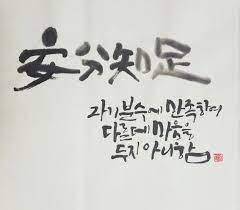 安分知足
자기분수에 만족하여
다른데 마음을
두지아니함